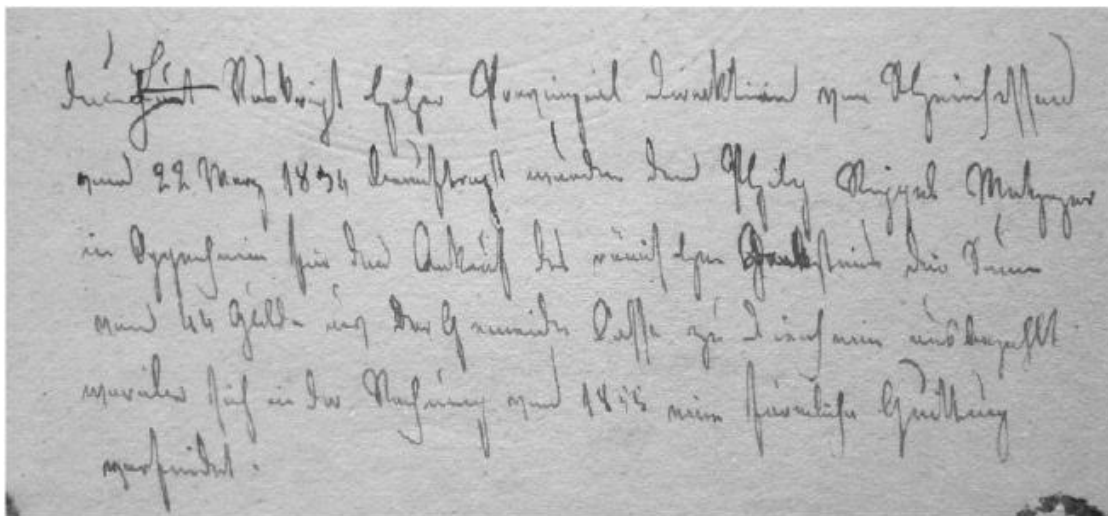 Rescript hoher Provinzial Direktion von Rheinhessen
vom 22 März 1834 beauftragt wurden dem Philip Metzger
in Oppenheim für den Ankauf des römischen Denksteins die Summ
von 44 Gulden aus der Gemeinde Casse zu Dienheim ausbezahlt
worüber sich in der Rechnung von 1833 eine förmliche Quittung
vorfindet.